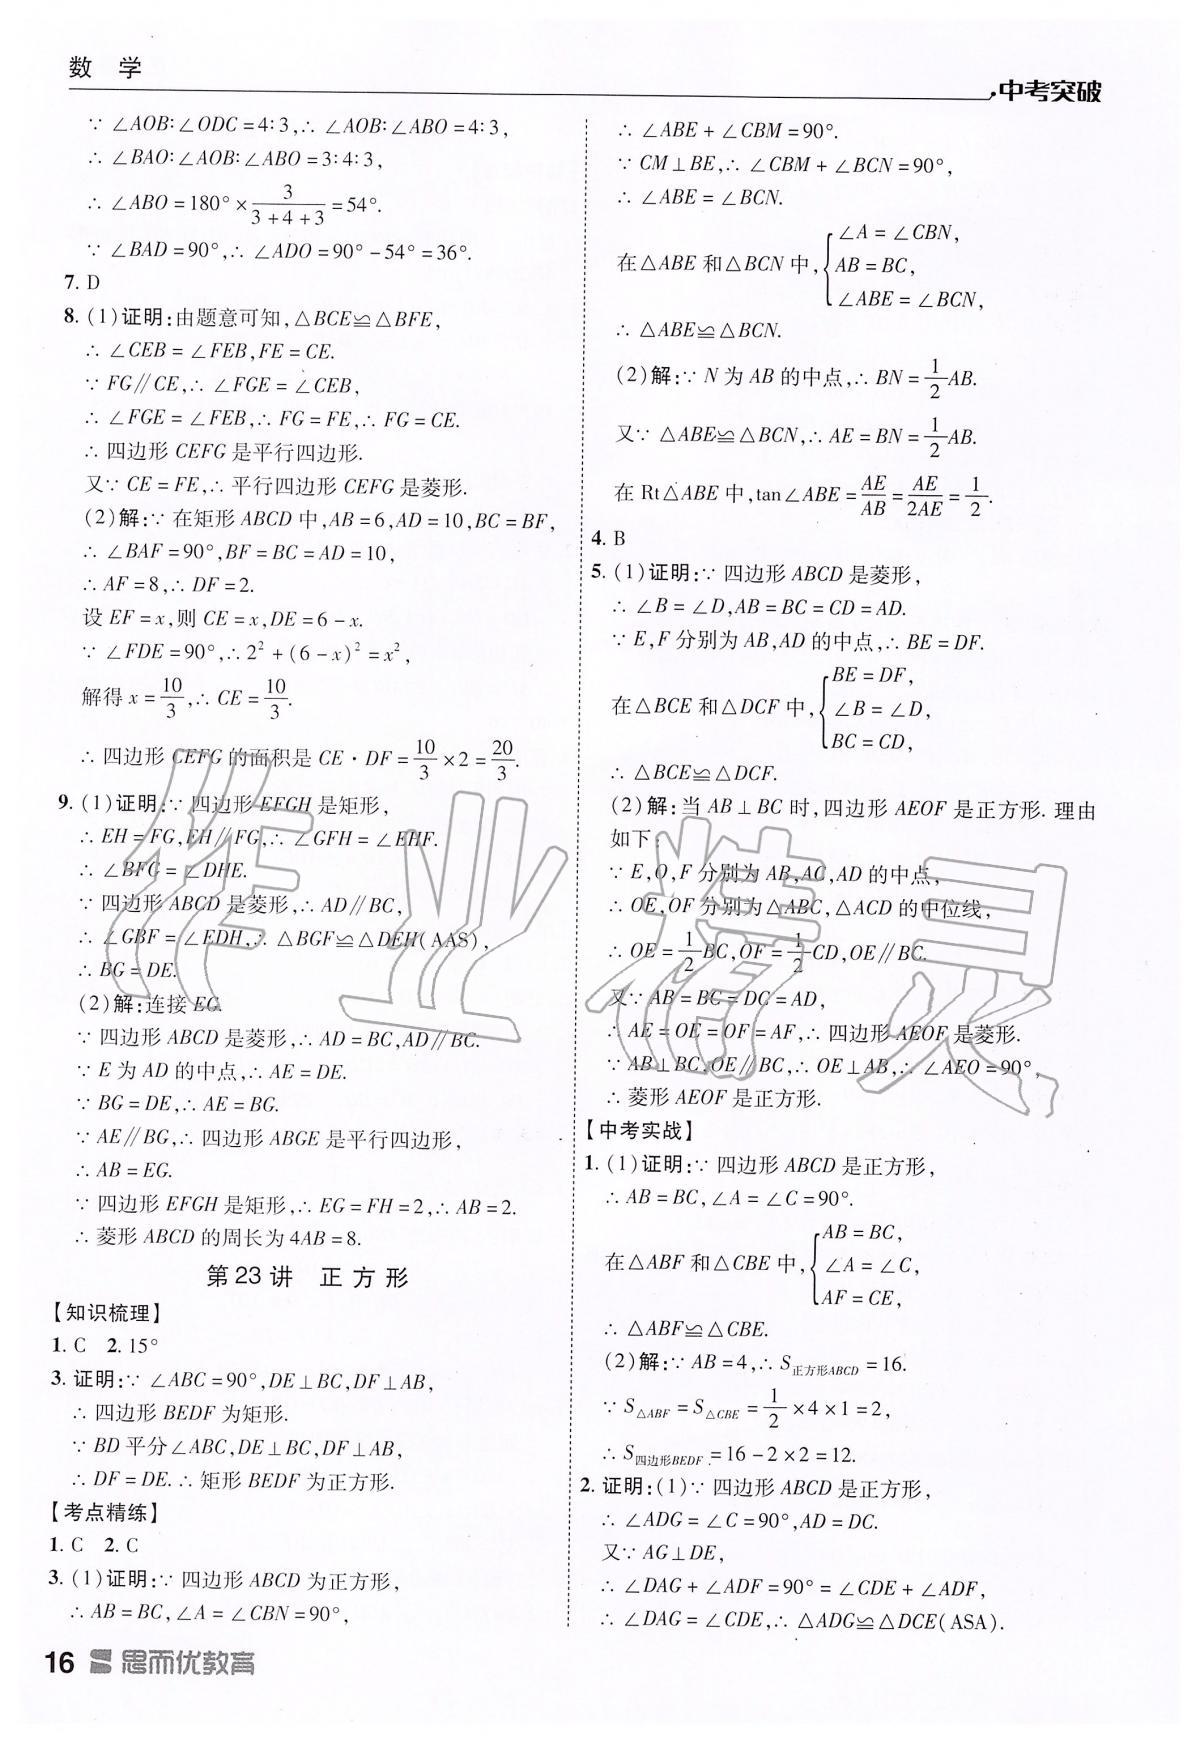 数 学
中考突破
∵ ∠AOB∶∠ODC=4∶3,∴ ∠AOB∶∠ABO=4∶3,
∴ ∠BAO∶∠AOB∶∠ABO=3∶4∶3,
∴ ∠ABO=180°×3/(3+4+3)=54°.
∵ ∠BAD=90°,∴ ∠ADO=90°-54°=36°.
7. D
8. (1)证明:由题意可知,△BCE≌△BFE,
∴ ∠CEB=∠FEB,FE=CE.
∵ FG∥CE,∴ ∠FGE=∠CEB,
∴ ∠FGE=∠FEB,∴ FG=FE,∴ FG=CE.
∴ 四边形 CEFG 是平行四边形.
又∵ CE=FE,∴ 平行四边形 CEFG 是菱形.
(2)解:∵ 在矩形 ABCD 中,AB=6,AD=10,BC=BF,
∴ ∠BAF=90°,BF=BC=AD=10,
∴ AF=8,∴ DF=2.
设 EF=x,则 CE=x,DE=6-x.
∵ ∠FDE=90°,∴ 2²+(6-x)²=x²,
解得 x=10/3,∴ CE=10/3.
∴ 四边形 CEFG 的面积是 CE·DF=10/3×2=20/3.
9. (1)证明:∵ 四边形 EFGH 是矩形,
∴ EH=FG,EH∥FG,∴ ∠GFH=∠EHF.
∴ ∠BFG=∠DHE.
∵ 四边形 ABCD 是菱形,∴ AD∥BC,
∴ ∠GBF=∠EDH,∴ △BGF≌△DEH(AAS),
∴ BG=DE.
(2)解:连接 EG.
∵ 四边形 ABCD 是菱形,∴ AD=BC,AD∥BC.
∵ E 为 AD 的中点,∴ AE=DE.
∵ BG=DE,∴ AE=BG.
∵ AE∥BG,∴ 四边形 ABGE 是平行四边形,
∴ AB=EG.
∵ 四边形 EFGH 是矩形,∴ EG=FH=2,∴ AB=2.
∴ 菱形 ABCD 的周长为 4AB=8.
第 23 讲 正 方 形
【知识梳理】
1. C 2. 15°
3. 证明:∵ ∠ABC=90°,DE⊥BC,DF⊥AB,
∴ 四边形 BEDF 为矩形.
∵ BD 平分∠ABC,DE⊥BC,DF⊥AB,
∴ DF=DE.∴ 矩形 BEDF 为正方形.
【考点精练】
1. C 2. C
3. (1)证明:∵ 四边形 ABCD 为正方形,
∴ AB=BC,∠A=∠CBN=90°,
∴ ∠ABE+∠CBM=90°.
∵ CM⊥BE,∴ ∠CBM+∠BCN=90°,
∴ ∠ABE=∠BCN.
∠A=∠CBN,
在△ABE 和△BCN 中,{AB=BC,
∠ABE=∠BCN,
∴ △ABE≌△BCN.
(2)解:∵ N 为 AB 的中点,∴ BN=1/2AB.
又∵ △ABE≌△BCN,∴ AE=BN=1/2AB.
在 Rt△ABE 中,tan∠ABE=AE/AB=AE/2AE=1/2.
4. B
5. (1)证明:∵ 四边形 ABCD 是菱形,
∴ ∠B=∠D,AB=BC=CD=AD.
∵ E,F 分别为 AB,AD 的中点,∴ BE=DF.
BE=DF,
在△BCE 和△DCF 中,{∠B=∠D,
BC=CD,
∴ △BCE≌△DCF.
(2)解:当 AB⊥BC 时,四边形 AEOF 是正方形. 理由
如下:
∵ E,O,F 分别为 AB,AC,AD 的中点,
∴ OE,OF 分别为△ABC,△ACD 的中位线,
∴ OE=1/2BC,OF=1/2CD,OE∥BC.
又∵ AB=BC=DC=AD,
∴ AE=OE=OF=AF,∴ 四边形 AEOF 是菱形.
∵ AB⊥BC,OE∥BC,∴ OE⊥AB,∴ ∠AEO=90°,
∴ 菱形 AEOF 是正方形.
【中考实战】
1. (1)证明:∵ 四边形 ABCD 是正方形,
∴ AB=BC,∠A=∠C=90°.
AB=BC,
在△ABF 和△CBE 中,{∠A=∠C,
AF=CE,
∴ △ABF≌△CBE.
(2)解:∵ AB=4,∴ S正方形ABCD=16.
∵ S△ABF=S△CBE=1/2×4×1=2,
∴ S四边形BEDF=16-2×2=12.
2. 证明:(1)∵ 四边形 ABCD 是正方形,
∴ ∠ADG=∠C=90°,AD=DC.
又∵ AG⊥DE,
∴ ∠DAG+∠ADF=90°=∠CDE+∠ADF,
∴ ∠DAG=∠CDE,∴ △ADG≌△DCE(ASA).
作业精灵
16 思而优教育